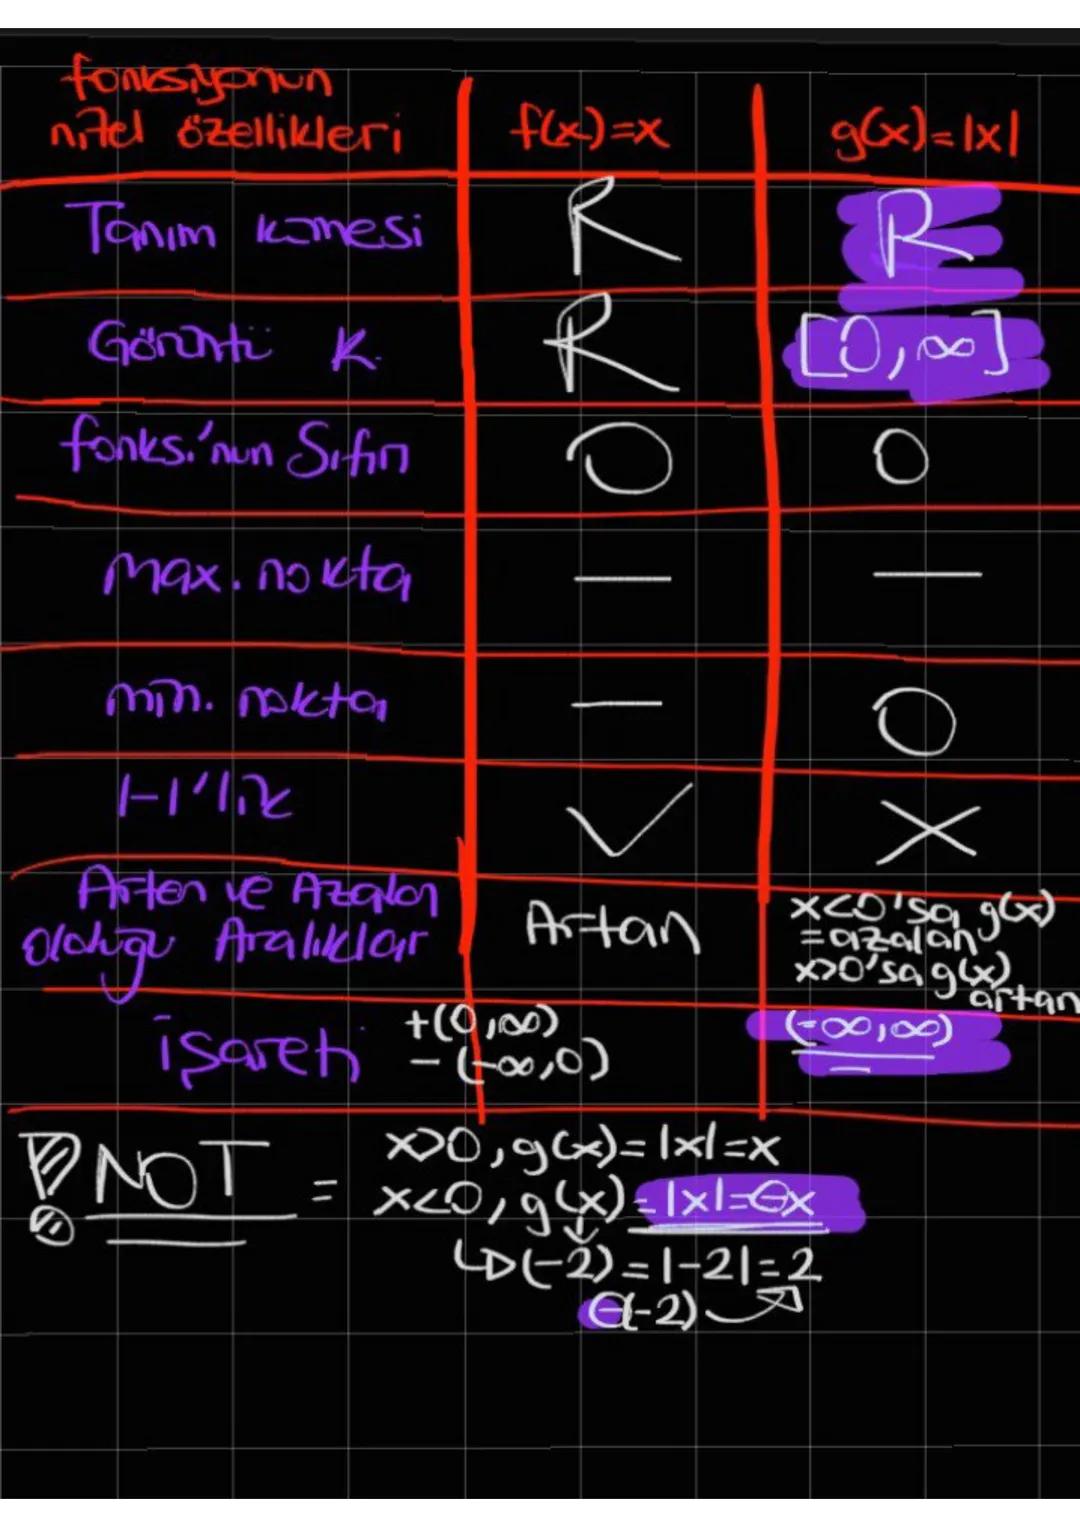 fonksiyonun
nitel özellikleri f(x)=x g(x)=|x|
Tanım kümesi R R
Görüntü K. R [0,∞]
fonks.'nun Sıfırı 0 0
Max. nokta — —
min. nokta — 0
1-1'lik ✓ X
Artan ve Azalan
olduğu Aralıklar Artan x<0'sa g(x)
=azalan
x>0'sa g(x)
artan
işareti +(0,∞) (-∞,∞)
- (-∞,0)
NOT = x>0, g(x)=|x|=x
x<0, g(x)=|x|=-x
↳(-2)=|-2|=2
-(-2)